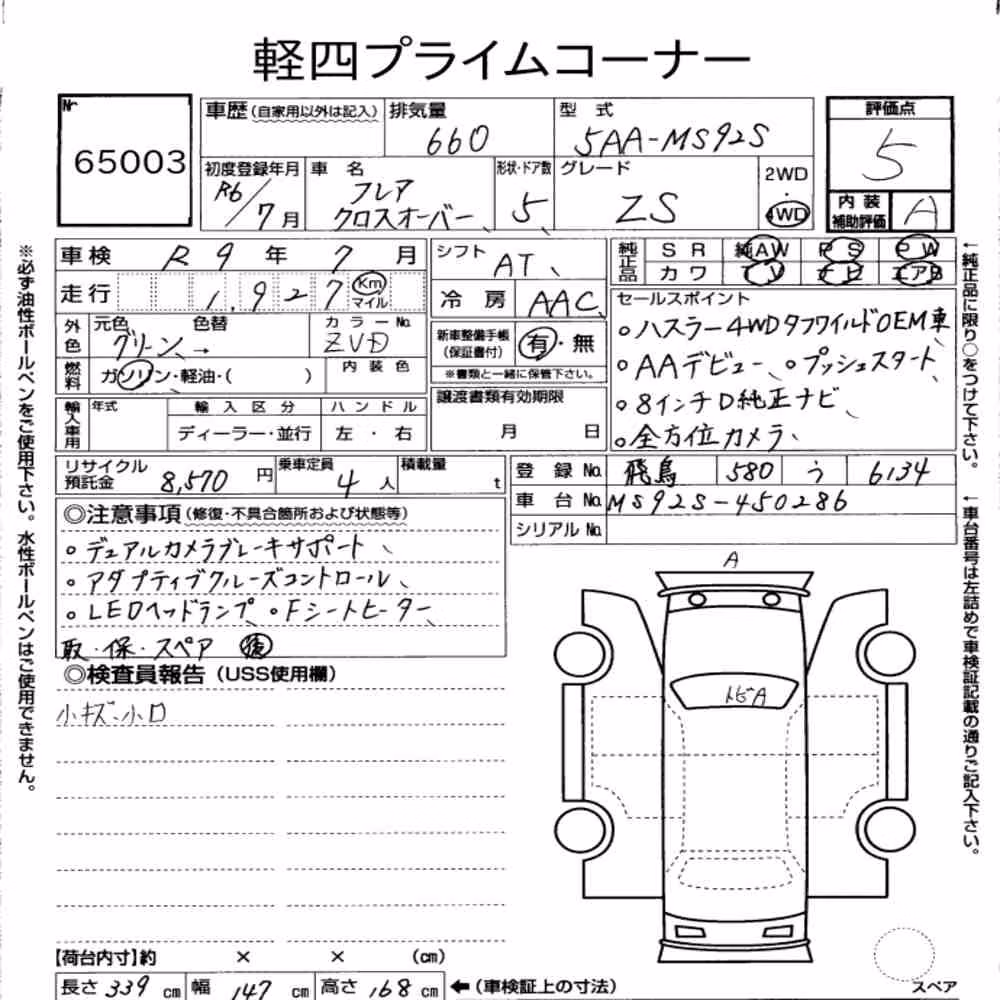 軽四プライムコーナー
Nr 65003
車歴(自家用以外は記入) 排気量 660 型式 5AA-MS92S
評価点 5
初度登録年月 R6/7月 車名 フレア クロスオーバー 形状・ドア数 5 グレード ZS 2WD・4WD
内装補助評価 A
車検 R9年7月 シフト AT
純正品 SR 純AW PS PW
カワ TV ナビ エアB
走行 1,927 Km マイル 冷房 AAC
外色 元色 グリーン 色替 → カラーNo. ZVD
新車整備手帳(保証書付) 有・無
※書類と一緒に保管下さい。
燃料 ガソリン・軽油・( ) 内装色
セールスポイント
○ハスラー4WDタフワイルドOEM車
○AAデビュー、○プッシュスタート、
○8インチD純正ナビ、
○全方位カメラ、
輸入車用 年式 輸入区分 ハンドル
ディーラー・並行 左・右
譲渡書類有効期限 月 日
リサイクル預託金 8,570円 乗車定員 4人 積載量 t
登録No. 飛鳥 580 う 6134
車台No. MS92S-450286
シリアルNo.
◎注意事項(修復・不具合箇所および状態等)
○デュアルカメラブレーキサポート、
○アダプティブクルーズコントロール、
○LEDヘッドランプ ○Fシートヒーター
取・保・スペア 後
◎検査員報告(USS使用欄)
小キズ、小凹
A
トビA
【荷台内寸】約 × × (cm)
長さ 339 cm 幅 147 cm 高さ 168 cm ←(車検証上の寸法)
スペア
※必ず油性ボールペンをご使用下さい。水性ボールペンはご使用できません。
←純正品に限り○をつけて下さい。
←車台番号は左詰めで車検証記載の通りご記入下さい。